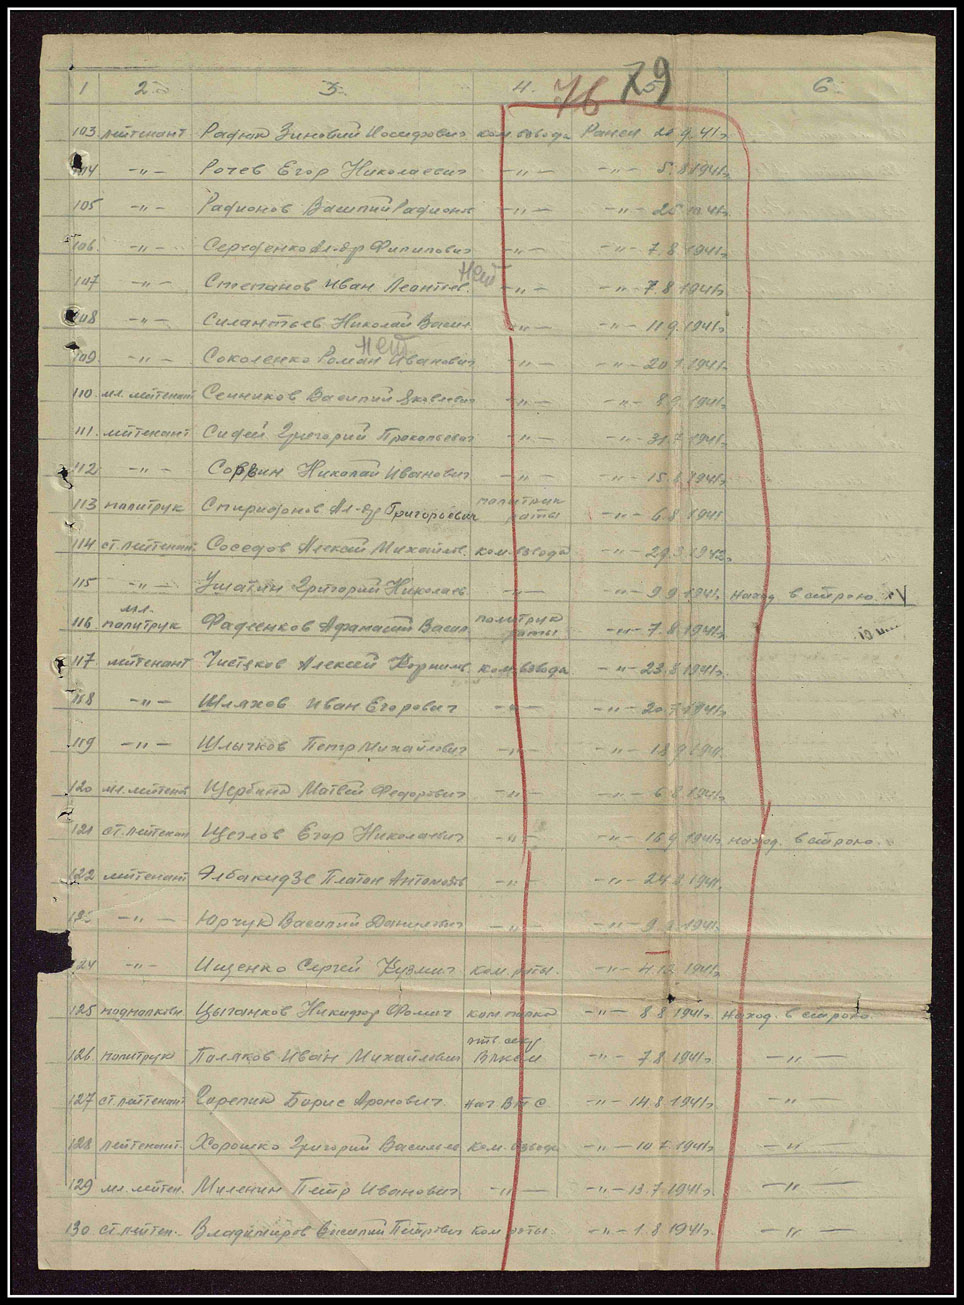 76 79
1 2 3 4. 5 6
103 лейтенант Радюк Зиновий Иосифович ком. взвода Ранен 9.41г
104 —"— Рочев Егор Николаевич —"— —"— 5.8.1941г.
105 —"— Радионов Василий Радионов —"— —"— 41г.
106 —"— Ал-др Филипович —"— —"— 7.8.1941г.
нет
107 —"— Степанов Иван Леонтьев. —"— —"— 7.8.1941г.
108 —"— Силантьев Николай Васил —"— —"— 11.9.1941г.
нет
109 —"— Соколенко Роман Иванович —"— —"— 1941г.
110 мл. лейтенант Сенников Василий Яковлевич —"— —"— 1941г.
111. лейтенант Григорий Прокопьевич —"— —"— 31.7.1941г.
112 —"— Николай Иванович —"— —"— 1941г.
113 политрук Спиридонов Ал-др Григорьевич политрук роты —"— 6.8.1941
114 ст. лейтенант Соседов Алексей Михайлов. ком. взвода —"— 1942г.
115 —"— Григорий Николаев —"— —"— 9.9.1941г. Наход. в строю. V
116 мл. политрук Фадеенков Афанасий Васил политрук роты —"— 7.8.1941г.
117 лейтенант Чистяков Алексей Корнилов. ком. взвода —"— 23.8.1941г.
118 —"— Шляхов Иван Егорович —"— —"— 1941г.
119 —"— Шлычков Петр Михайлович —"— —"— 18.9.1941.
120 мл. лейтенант Щербина Матвей Федорович —"— —"— 6.8.1941г.
121 ст. лейтенан Щеглов Егор Николаевич —"— —"— 16.9.1941г. Наход. в строю.
122 лейтенант Элбакидзе Платон —"— —"— 1941.
123 —"— Юрчук Василий Данилович —"— —"— 1941г.
124 —"— Ищенко Сергей Кузмич ком. роты. —"— 1941г.
125 подполковн Цыганков Никифор Фомич ком. полка —"— 8.8.1941г. Наход. в строю.
126 политрук Поляков Иван Михайлович отв. секр ВЛКСМ —"— 7.8.1941г —"—
127 ст. лейтенант Горелик Борис Аронович. —"— 14.8.1941г —"—
128 лейтенант. Хорошко Григорий Васильев ком. взвода —"— 1941г —"—
129 мл. лейтен. Миленин Петр Иванович. —"— —"— 13.7.1941г. —"—
130 ст. лейтен. Владимиров Василий Петрович ком. роты. —"— 1.8.1941г. —"—